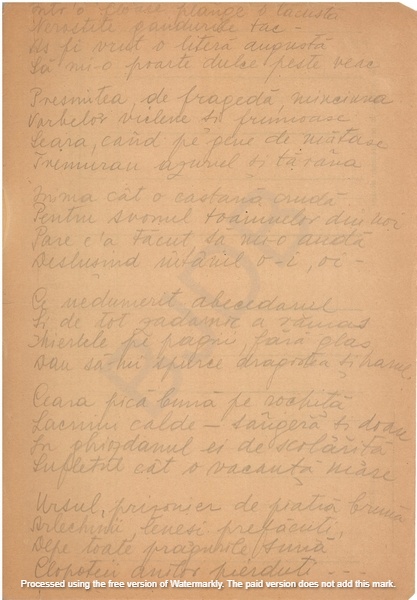 Într'o floare plânge o lăcustă
Nerostite gândurile tac -
Aș fi vrut o literă augustă
Să mi-o poarte dulce peste veac

Presimțea, de fragedă, minciuna
Vorbelor viclene și frumoase
Seara, când pe gene de mătase
Tremurau azurul și țărâna

Inima cât o castană crudă
Pentru svonul toamnelor din noi
Pare c'a tăcut să nu-o audă
Deslușind întâiul o-i, oi -

Ce nedumerit abecedarul
Și de tot zadarnic a rămas
Tinerele pe pagini, fără glas
Dau să-mi spurce dragostea și harul.

Ceara pică bună pe rochiță
Lacrimi calde - sângeră și dor
În ghiozdanul ei de școlăriță
Sufletul cât o vacanță mare

Ursul, prizonier de piatră brună
Arlechinii leneși prefăcuți,
Depe toate pragurile sună
Clopoțeii anilor pierduți - - -
Processed using the free version of Watermarkly. The paid version does not add this mark.